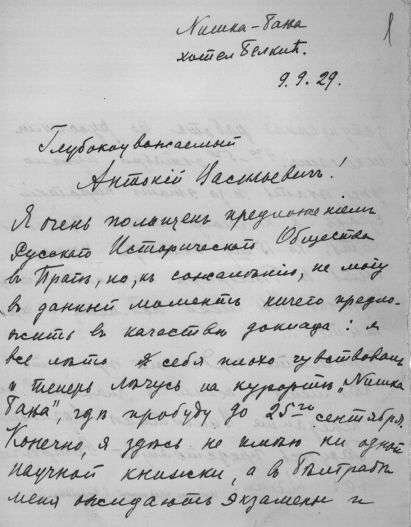 Нишка-Бања
хотел Белкић.
9.9.29.
Глубокоуважаемый
Антоній Васильевичъ!
Я очень польщенъ предложеніемъ
Русскаго Историческаго Общества
въ Прагѣ, но, къ сожалѣнію, не могу
въ данный моментъ ничего предло-
жить въ качествѣ доклада: я
все лѣто себя плохо чувствовалъ
и теперь лѣчусь на курортѣ „Нишка
Бања", гдѣ пробуду до 25го сентября.
Конечно, я здѣсь не имѣю ни одной
научной книжки, а въ Бѣлградѣ
меня ожидаютъ экзамены и